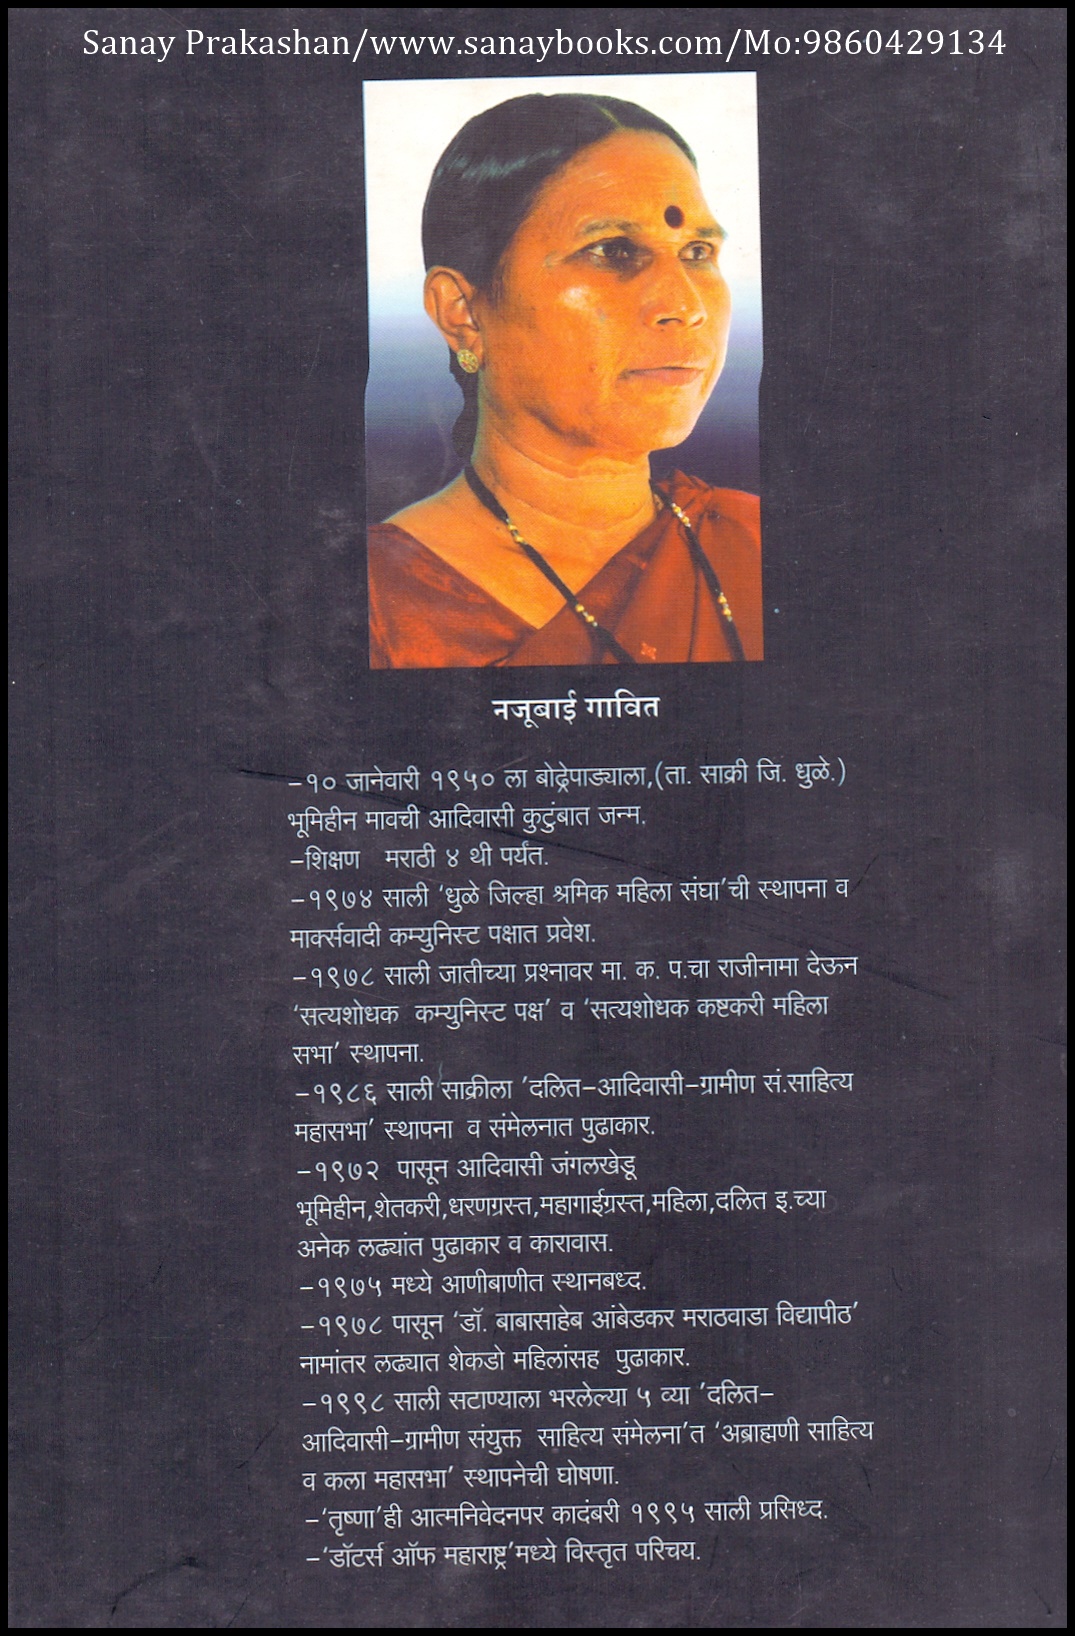 Sanay Prakashan/www.sanaybooks.com/Mo:9860429134
नजूबाई गावित
–१० जानेवारी १९५० ला बोद्रेपाड्याला,(ता. साक्री जि. धुळे.)
भूमिहीन मावची आदिवासी कुटुंबात जन्म.
–शिक्षण मराठी ४ थी पर्यंत.
–१९७४ साली ‘धुळे जिल्हा श्रमिक महिला संघा’ची स्थापना व
मार्क्सवादी कम्युनिस्ट पक्षात प्रवेश.
–१९७८ साली जातीच्या प्रश्नावर मा. क. प.चा राजीनामा देऊन
‘सत्यशोधक कम्युनिस्ट पक्ष’ व ‘सत्यशोधक कष्टकरी महिला
सभा’ स्थापना.
–१९८६ साली साक्रीला ’दलित–आदिवासी–ग्रामीण सं.साहित्य
महासभा’ स्थापना व संमेलनात पुढाकार.
–१९७२ पासून आदिवासी जंगलखेडू
भूमिहीन,शेतकरी,धरणग्रस्त,महागाईग्रस्त,महिला,दलित इ.च्या
अनेक लढ्यांत पुढाकार व कारावास.
–१९७५ मध्ये आणीबाणीत स्थानबध्द.
–१९७८ पासून ‘डॉ. बाबासाहेब आंबेडकर मराठवाडा विद्यापीठ’
नामांतर लढ्यात शेकडो महिलांसह पुढाकार.
–१९९८ साली सटाण्याला भरलेल्या ५ व्या ’दलित–
आदिवासी–ग्रामीण संयुक्त साहित्य संमेलना’त ‘अब्राह्मणी साहित्य
व कला महासभा’ स्थापनेची घोषणा.
–‘तृष्णा’ही आत्मनिवेदनपर कादंबरी १९९५ साली प्रसिध्द.
–‘डॉटर्स ऑफ महाराष्ट्र’मध्ये विस्तृत परिचय.